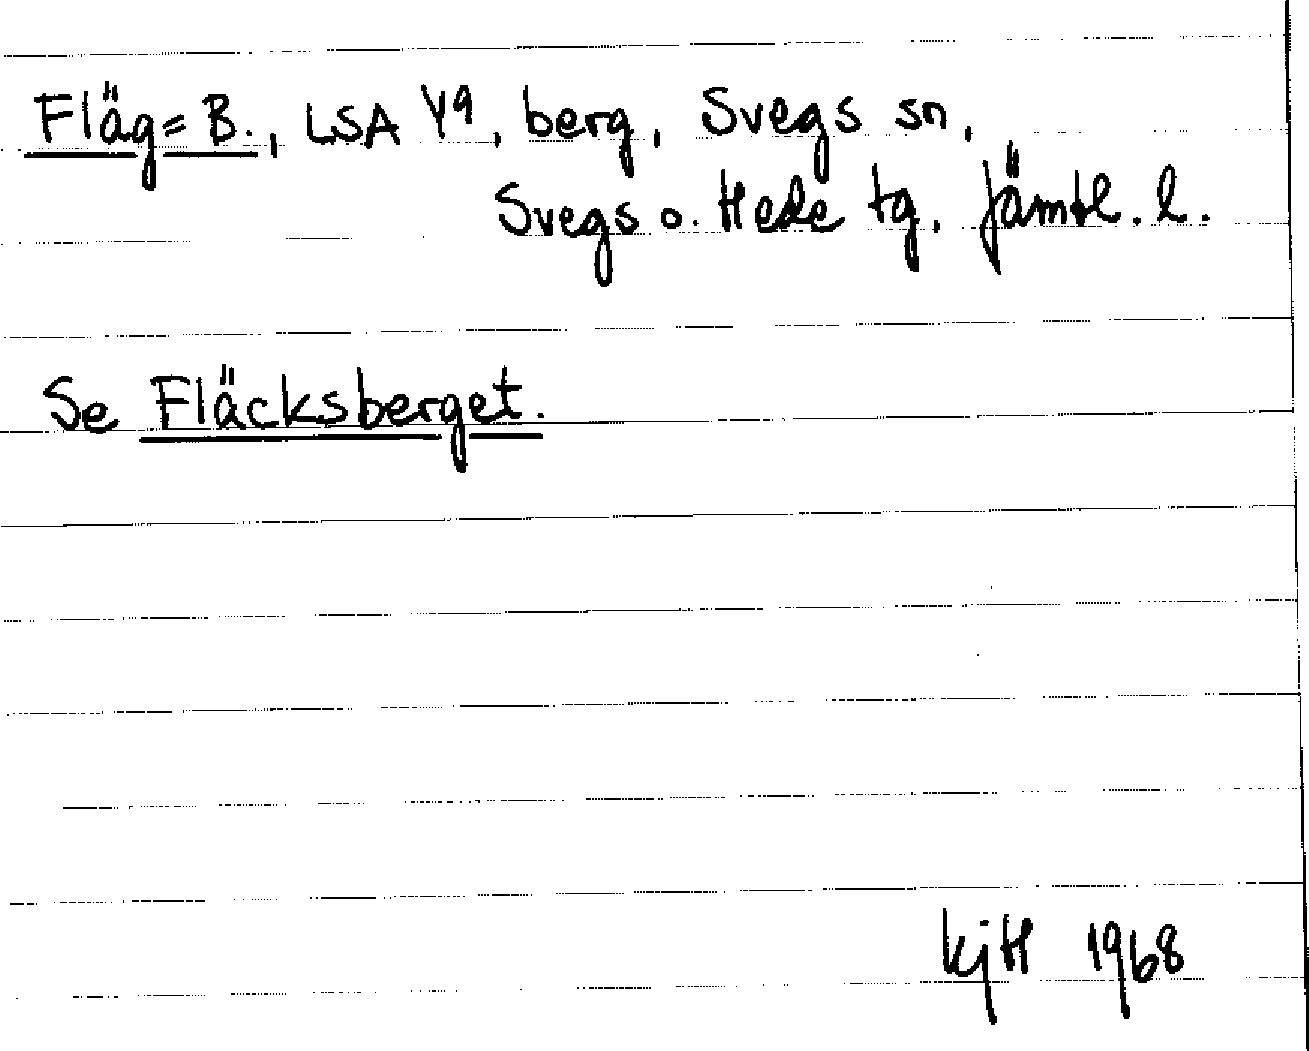 Fläg=B., LSA Y9, berg, Svegs sn,
Svegs o. Hede tg. Jämtl. l.
Se Fläcksberget.
KjH 1968